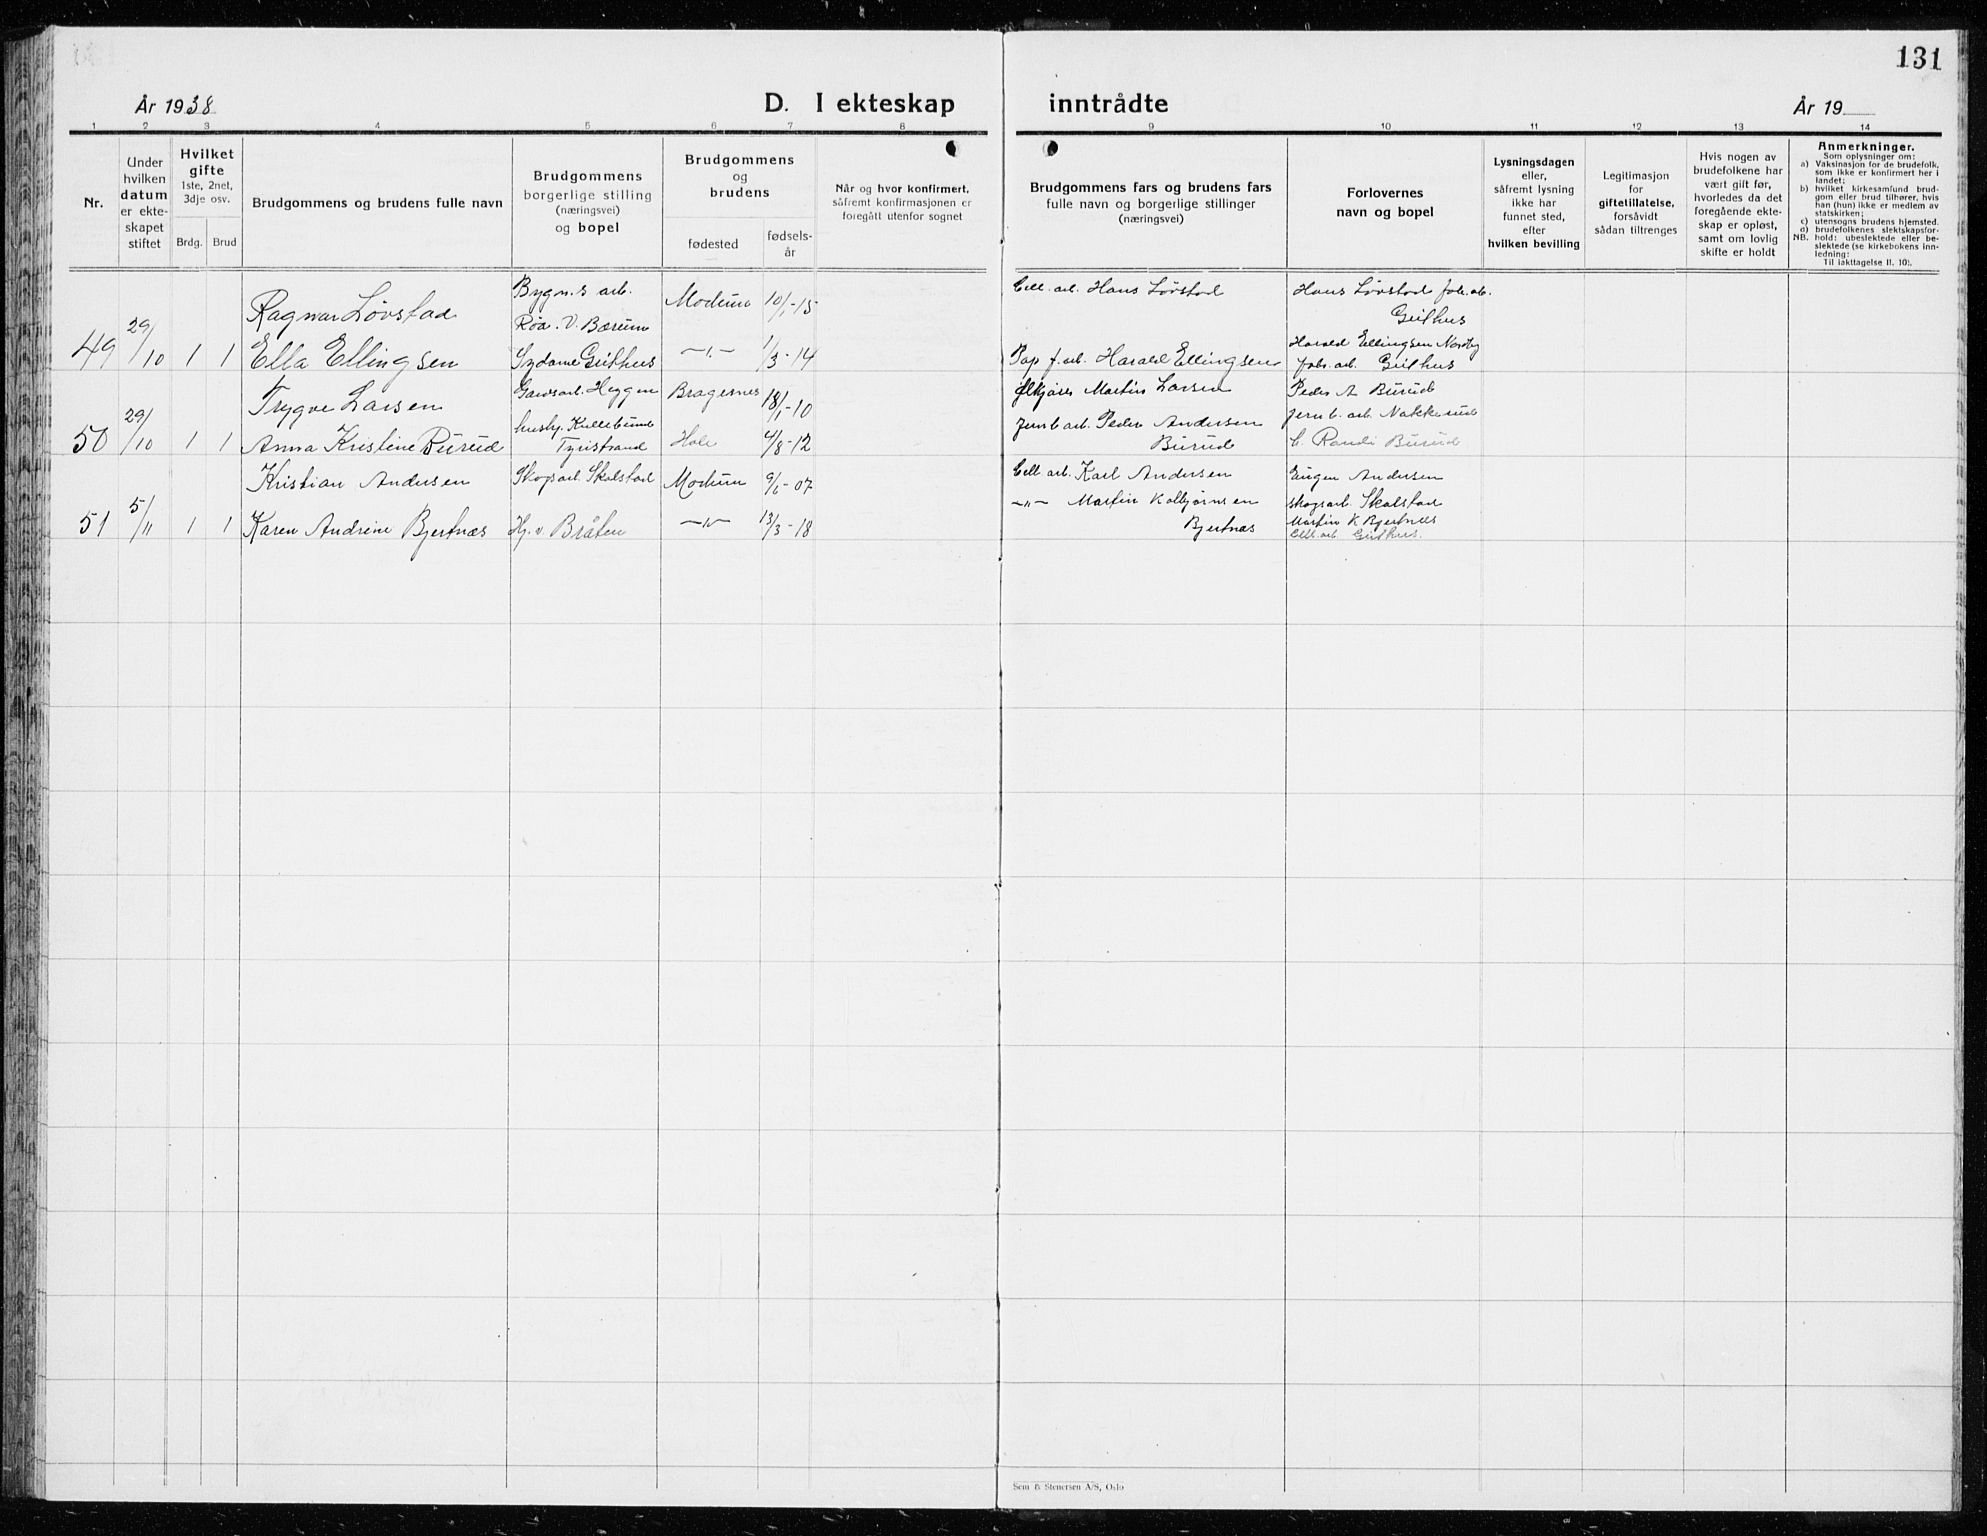 131
År 1938
D. I ekteskap inntrådte
År 19
1 2 3 4 5 6 7 8 9 10 11 12 13 14
Nr.
Under
hvilken
datum
er ekte-
skapet
stiftet
Hvilket
gifte
1ste, 2net,
3dje osv.
Brdg. Brud
Brudgommens og brudens fulle navn
Brudgommens
borgerlige stilling
(næringsvei)
og bopel
Brudgommens
og
brudens
fødested
fødsels-
år
Når og hvor konfirmert,
såfremt konfirmasjonen er
foregått utenfor sognet
Brudgommens fars og brudens fars
fulle navn og borgerlige stillinger
(næringsvei)
Forlovernes
navn og bopel
Lysningsdagen
eller,
såfremt lysning
ikke har
funnet sted,
efter
hvilken bevilling
Legitimasjon
for
giftetillatelse,
forsåvidt
sådan tiltrenges
Hvis nogen av
brudefolkene har
vært gift før,
hvorledes da det
foregående ekte-
skap er opløst,
samt om lovlig
skifte er holdt
Anmerkninger.
Som oplysninger om:
a) Vaksinasjon for de brudefolk,
som ikke er konfirmert her i
landet;
b) hvilket kirkesamfund brud-
gom eller brud tilhører, hvis
han (hun) ikke er medlem av
statskirken;
c) utensogns brudens hjemsted.
d) brudefolkenes slektskapsfor-
NB. hold: ubeslektede eller be-
slektede (se kirkebokens inn-
ledning:
Til iakttagelse II. 10).
49 29/10 1 1
Ragnar Løvstad
Ella Ellingsen
Bygn.s arb.
Røa. V. Bærum
Sydame Geithus
Modum 10/1-15
—"— 1/3-14
Cell. arb. Hans Løvstad
Pap f. arb. Harald Ellingsen
Hans Løvstad fab. ab.
Geithus
Harald Ellingsen Nordby
fabr. arb. Geithus
50 29/10 1 1
Trygve Larsen
Anna Kristine Burud
Gardsarb. Heggen
Tyristrand
Bragernes 18/1-10
Hole 4/8-12
Martin Larsen
Jernb arb. Peder Andersen
Burud
Peder A Burud
Jernb. arb. Nakkerud
Randi Burud
51 5/11 1 1
Kristian Andersen
Karen Andrine Bjertnæs
Skogsarb. Skalstad
Hj. v. Bråten
Modum 9/6-07
—"— 13/3-18
Cell arb. Karl Andersen
—"— Martin Kolbjørnsen
Bjertnæs
Eugen Andersen
skogsarb. Skalstad
Martin K Bjertnæs
Cell. arb. Geithus.
Sem & Stenersen A/S, Oslo